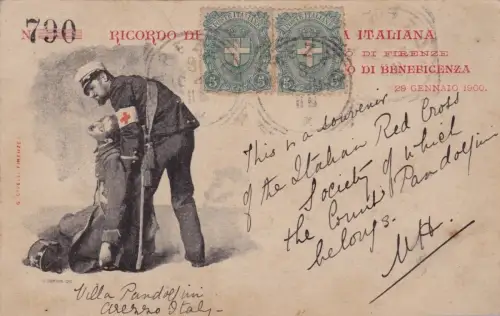 790
RICORDO DE A ITALIANA
DI FIRENZE
DI BENEFICENZA
29 GENNAIO 1900.
This is a souvenir
of the Italian Red Cross
Society of which
the Count Pandolfini
belongs.
MH.
Villa Pandolfini
Arezzo Italy